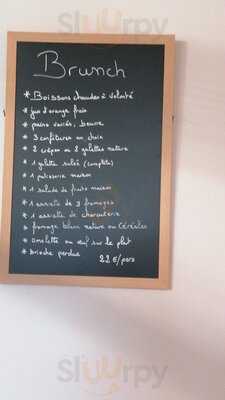 Sluurpy
Brunch
* Boissons chaudes à volonté
* jus d'orange frais
* pains variés, beurre
* 3 confitures au choix
* 2 crêpes ou 2 galettes nature
* 1 galette salée (complète)
* 1 patisserie maison
* 1 salade de fruits maison
* 1 assiette de 3 fromages
* 1 assiette de charcuterie
* fromage blanc nature ou Céréales
* Omelette ou œuf sur le plat
* brioche perdue 22€/pers
Sluurpy